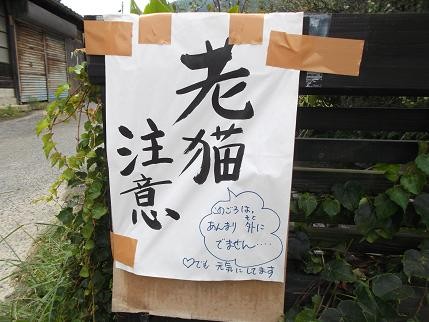 老猫
注意
このごろは、
あんまり外に
でません‥‥
♡でも元気にしてます